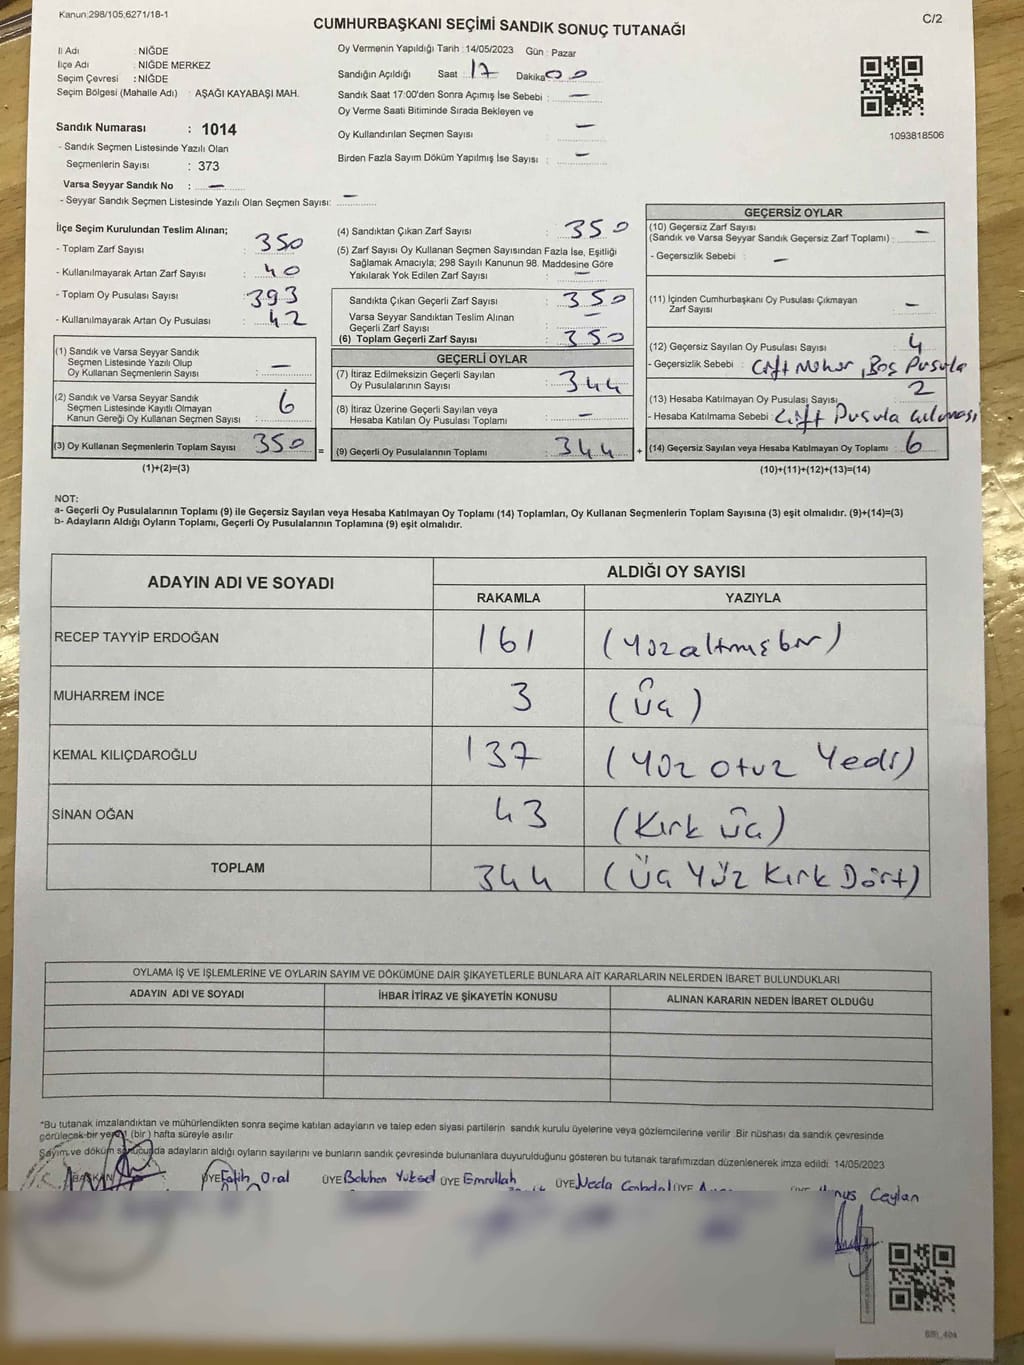 Kanun:298/105,6271/18-1
C/2
CUMHURBAŞKANI SEÇİMİ SANDIK SONUÇ TUTANAĞI
İl Adı : NİĞDE
İlçe Adı : NİĞDE MERKEZ
Seçim Çevresi : NİĞDE
Seçim Bölgesi (Mahalle Adı) : AŞAĞI KAYABAŞI MAH.
Sandık Numarası : 1014
- Sandık Seçmen Listesinde Yazılı Olan
Seçmenlerin Sayısı : 373
Varsa Seyyar Sandık No : —
- Seyyar Sandık Seçmen Listesinde Yazılı Olan Seçmen Sayısı: —
Oy Vermenin Yapıldığı Tarih : 14/05/2023 Gün : Pazar
Sandığın Açıldığı Saat : 17 Dakika 00
Sandık Saat 17:00'den Sonra Açımış İse Sebebi : —
Oy Verme Saati Bitiminde Sırada Bekleyen ve
Oy Kullandırılan Seçmen Sayısı : —
Birden Fazla Sayım Döküm Yapılmış İse Sayısı : —
1093818506
İlçe Seçim Kurulundan Teslim Alınan;
- Toplam Zarf Sayısı : 350
- Kullanılmayarak Artan Zarf Sayısı : 40
- Toplam Oy Pusulası Sayısı : 393
- Kullanılmayarak Artan Oy Pusulası : 42
(1) Sandık ve Varsa Seyyar Sandık
Seçmen Listesinde Yazılı Olup
Oy Kullanan Seçmenlerin Sayısı : —
(2) Sandık ve Varsa Seyyar Sandık
Seçmen Listesinde Kayıtlı Olmayan
Kanun Gereği Oy Kullanan Seçmen Sayısı : 6
(3) Oy Kullanan Seçmenlerin Toplam Sayısı 350
(1)+(2)=(3)
(4) Sandıktan Çıkan Zarf Sayısı : 350
(5) Zarf Sayısı Oy Kullanan Seçmen Sayısından Fazla İse, Eşitliği
Sağlamak Amacıyla; 298 Sayılı Kanunun 98. Maddesine Göre
Yakılarak Yok Edilen Zarf Sayısı : —
Sandıkta Çıkan Geçerli Zarf Sayısı : 350
Varsa Seyyar Sandıktan Teslim Alınan
Geçerli Zarf Sayısı : —
(6) Toplam Geçerli Zarf Sayısı : 350
GEÇERLİ OYLAR
(7) İtiraz Edilmeksizin Geçerli Sayılan
Oy Pusulalarının Sayısı : 344
(8) İtiraz Üzerine Geçerli Sayılan veya
Hesaba Katılan Oy Pusulası Toplamı : —
= (9) Geçerli Oy Pusulalarının Toplamı : 344 +
GEÇERSİZ OYLAR
(10) Geçersiz Zarf Sayısı
(Sandık ve Varsa Seyyar Sandık Geçersiz Zarf Toplamı) : —
- Geçersizlik Sebebi : —
(11) İçinden Cumhurbaşkanı Oy Pusulası Çıkmayan
Zarf Sayısı : —
(12) Geçersiz Sayılan Oy Pusulası Sayısı : 4
- Geçersizlik Sebebi : Çift Mühür, Boş Pusula
(13) Hesaba Katılmayan Oy Pusulası Sayısı : 2
- Hesaba Katılmama Sebebi : Çift Pusula
(14) Geçersiz Sayılan veya Hesaba Katılmayan Oy Toplamı : 6
(10)+(11)+(12)+(13)=(14)
NOT:
a- Geçerli Oy Pusulalarının Toplamı (9) ile Geçersiz Sayılan veya Hesaba Katılmayan Oy Toplamı (14) Toplamları, Oy Kullanan Seçmenlerin Toplam Sayısına (3) eşit olmalıdır. (9)+(14)=(3)
b- Adayların Aldığı Oyların Toplamı, Geçerli Oy Pusulalarının Toplamına (9) eşit olmalıdır.
ADAYIN ADI VE SOYADI ALDIĞI OY SAYISI
RAKAMLA YAZIYLA
RECEP TAYYİP ERDOĞAN 161 (Yüzaltmışbir)
MUHARREM İNCE 3 (Üç)
KEMAL KILIÇDAROĞLU 137 (Yüz otuz Yedi)
SİNAN OĞAN 43 (Kırk üç)
TOPLAM 344 (Üç Yüz Kırk Dört)
OYLAMA İŞ VE İŞLEMLERİNE VE OYLARIN SAYIM VE DÖKÜMÜNE DAİR ŞİKAYETLERLE BUNLARA AİT KARARLARIN NELERDEN İBARET BULUNDUKLARI
ADAYIN ADI VE SOYADI İHBAR İTİRAZ VE ŞİKAYETİN KONUSU ALINAN KARARIN NEDEN İBARET OLDUĞU
*Bu tutanak imzalandıktan ve mühürlendikten sonra seçime katılan adayların ve talep eden siyasi partilerin sandık kurulu üyelerine veya gözlemcilerine verilir. Bir nüshası da sandık çevresinde
görülecek bir yere 1 (bir) hafta süreyle asılır
Sayım ve döküm sonucunda adayların aldığı oyların sayılarını ve bunların sandık çevresinde bulunanlara duyurulduğunu gösteren bu tutanak tarafımızdan düzenlenerek imza edildi. 14/05/2023
BAŞKAN ÜYE Fatih Oral ÜYE Yüksel ÜYE Emrullah ÜYE ÜYE Ceylan